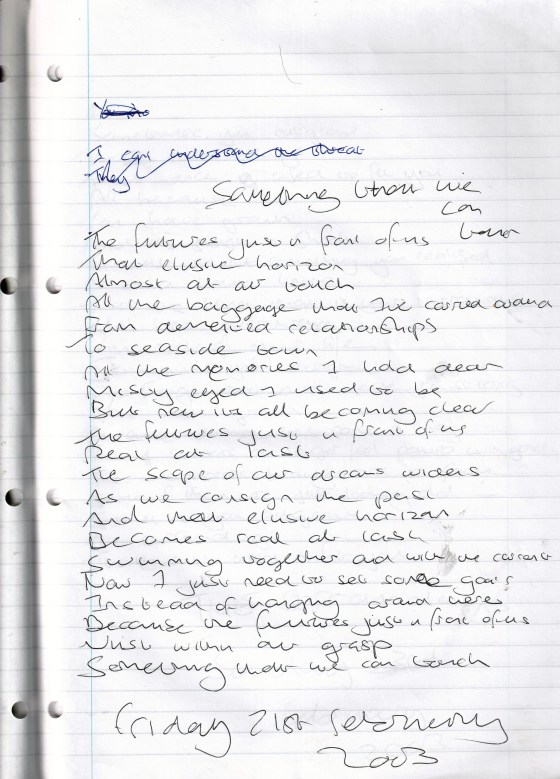 I can understand the threat
They
Something that we
can
touch
The futures just in front of us
That elusive horizon
Almost at our touch
All the baggage that I've carried around
From demented relationships
To seaside town
All the memories I hold dear
Misty eyed I used to be
But now its all becoming clear
The futures just in front of us
Real at last
The scope of our dreams widens
As we consign the past
And that elusive horizon
Becomes real at last
Swimming together and with the current
Now I just need to set some goals
Instead of hanging around here
Because the futures just in front of us
Just within our grasp
Something that we can touch
Friday 21st February
2003